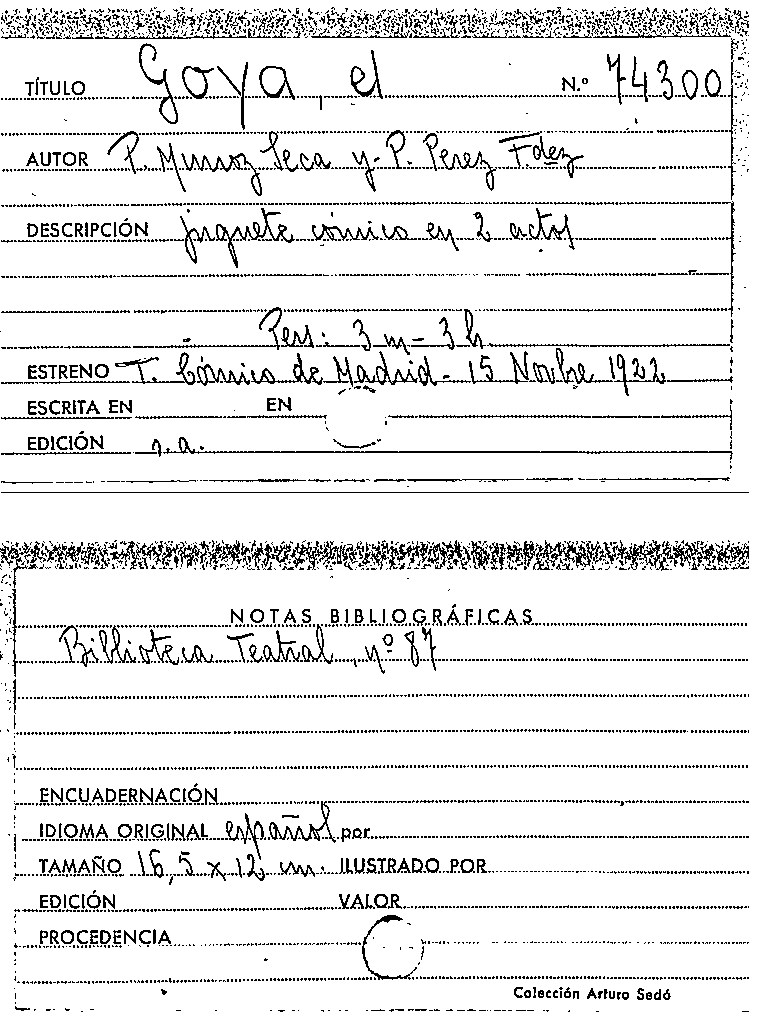 TÍTULO Goya, el N.º 74300
AUTOR P. Muñoz Seca y P. Perez Fdez
DESCRIPCIÓN juguete cómico en 2 actos
Pers: 3 m - 3 h.
ESTRENO T. Cómico de Madrid - 15 Novbre 1922
ESCRITA EN EN
EDICIÓN s.a.
NOTAS BIBLIOGRÁFICAS
Biblioteca Teatral, nº 87
ENCUADERNACIÓN
IDIOMA ORIGINAL español por
TAMAÑO 16,5 x 12 cm. ILUSTRADO POR
EDICIÓN VALOR
PROCEDENCIA
Colección Arturo Sedó